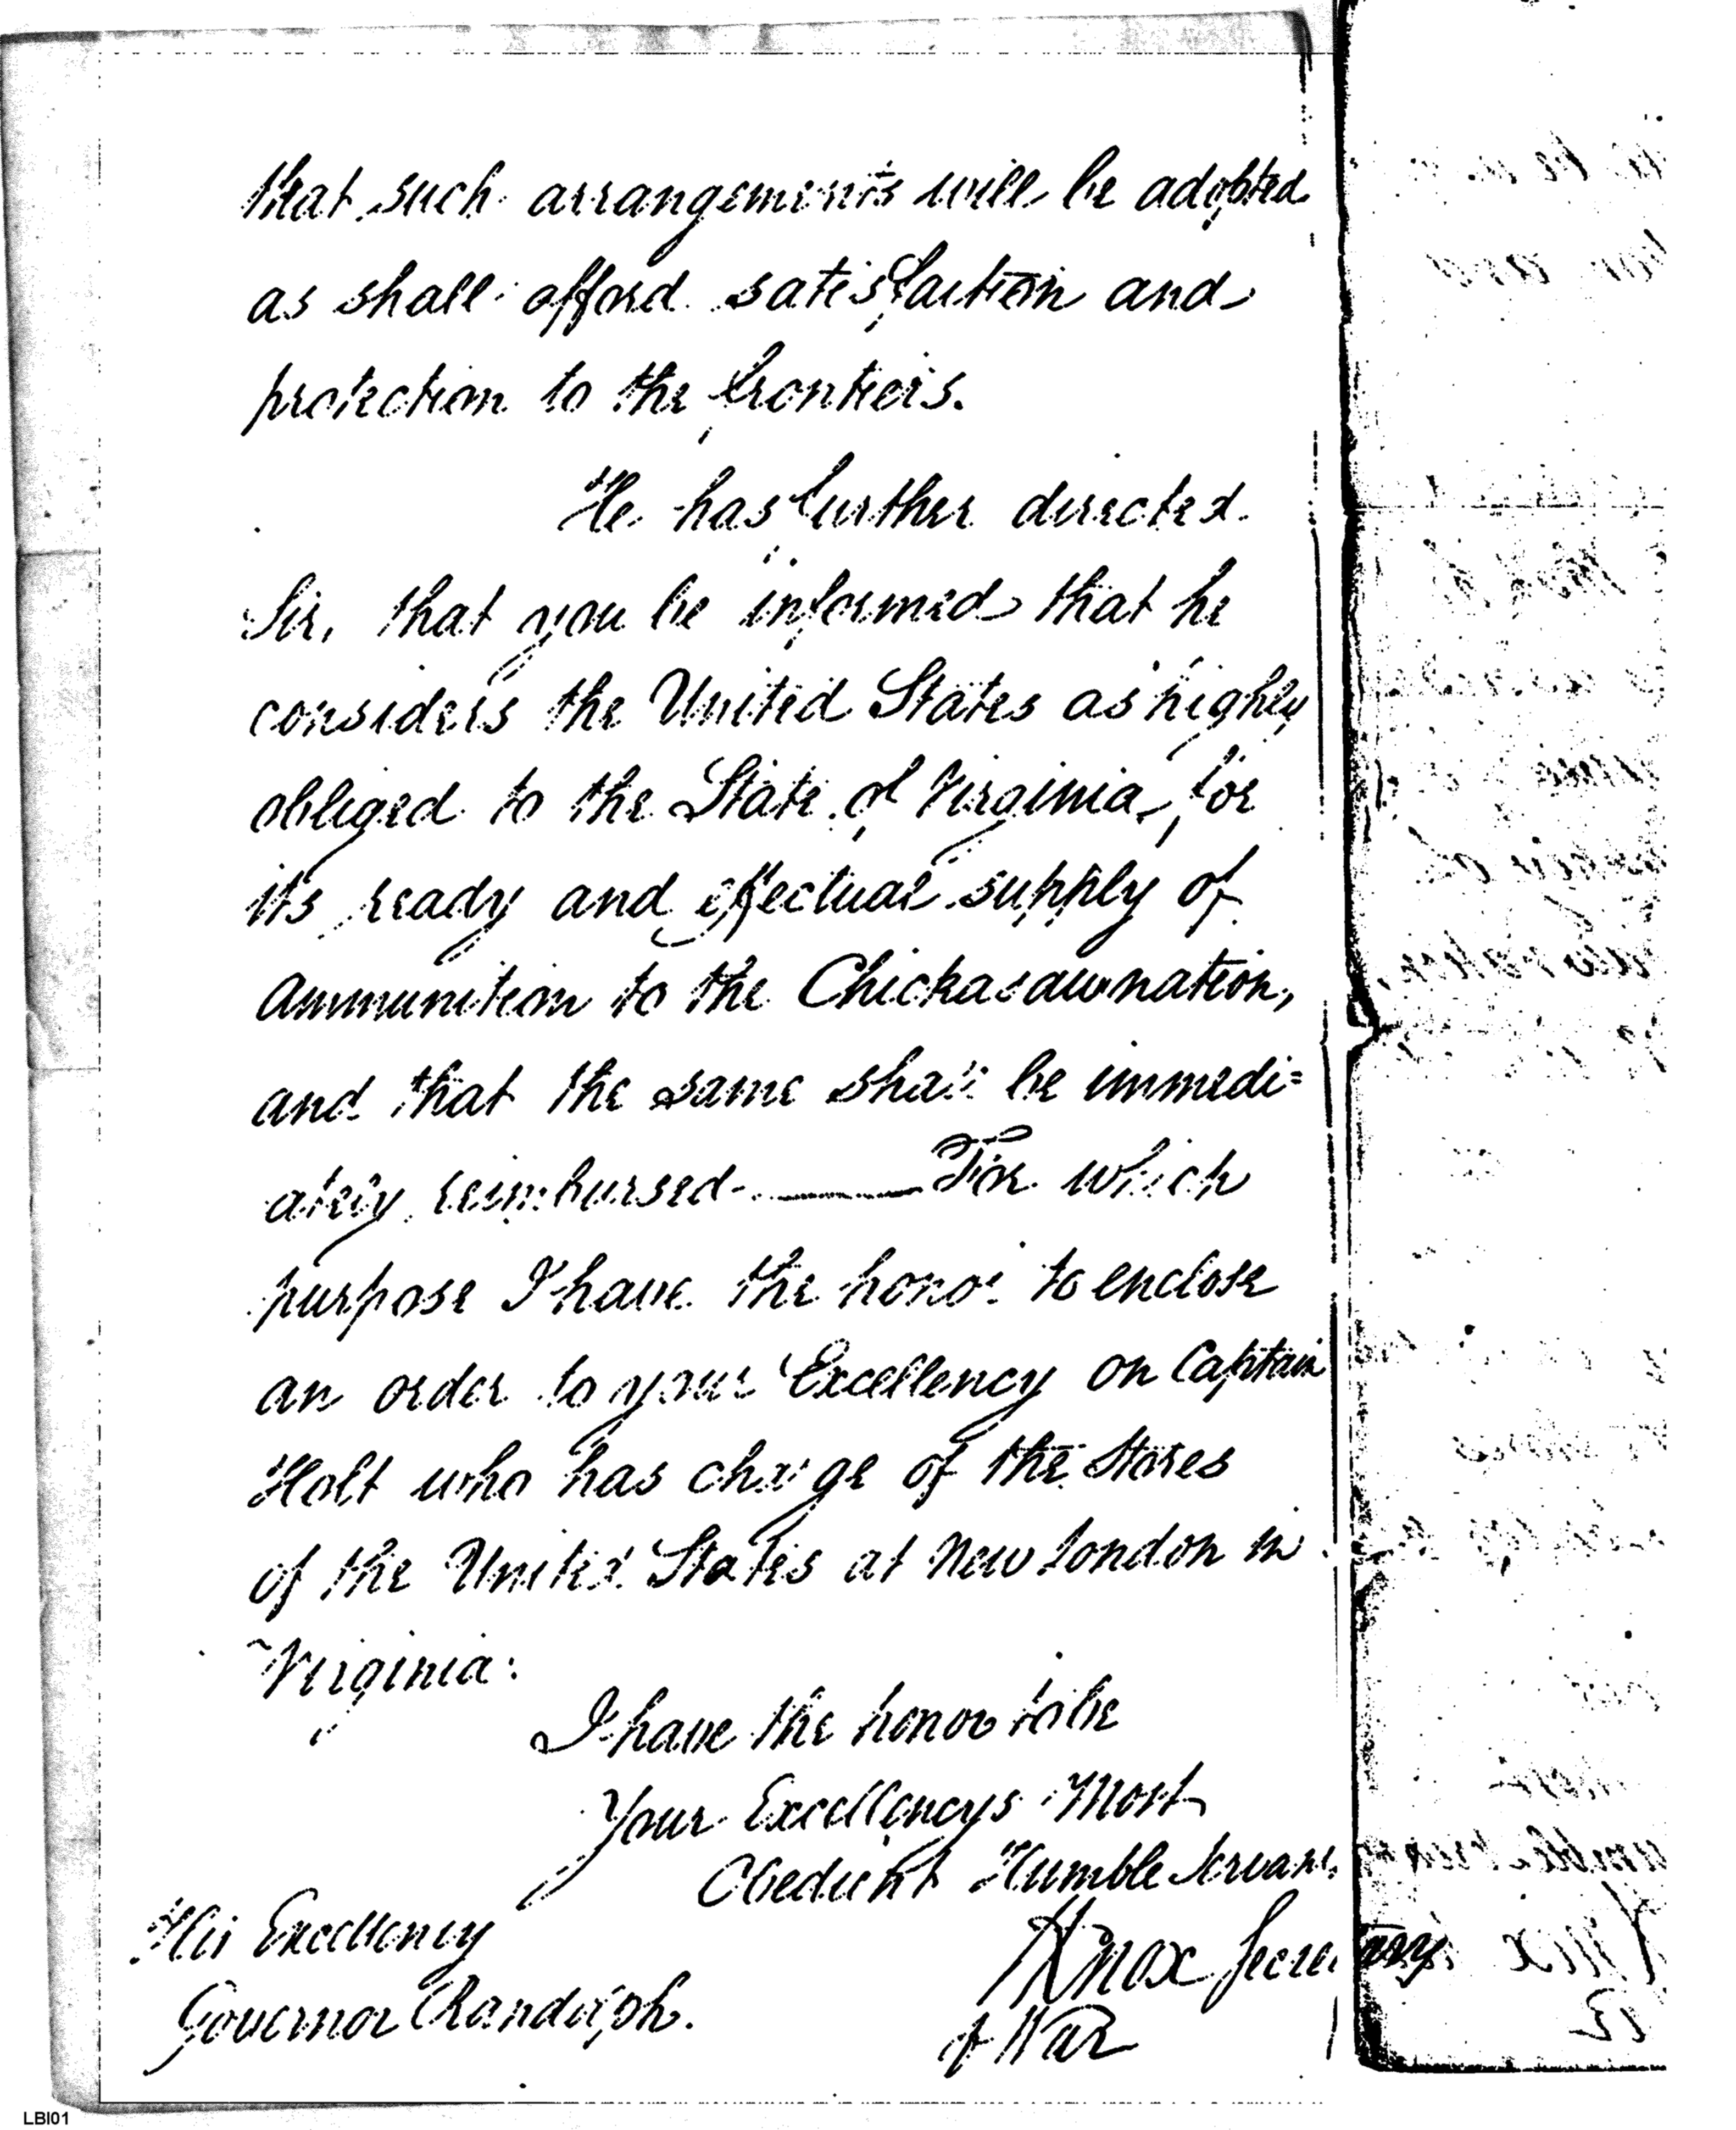 that such arrangements will be adopted
as shall afford satisfaction and
protection to the frontiers.
He has further directed
Sir, that you be informed that he
considers the United States as highly
obliged to the State of Virginia for
its ready and effectual supply of
ammunition to the Chickasaw nation,
and that the same shall be immedi=
ately reimbursed — For which
purpose I have the honor to enclose
an order to your Excellency on Captain
Holt who has charge of the Stores
of the United States at New London in
Virginia:
I have the honor to be
Your Excellencys Most
Obedient Humble Servant
HKnox Secretary
of War
His Excellency
Governor Randolph.
LBI01